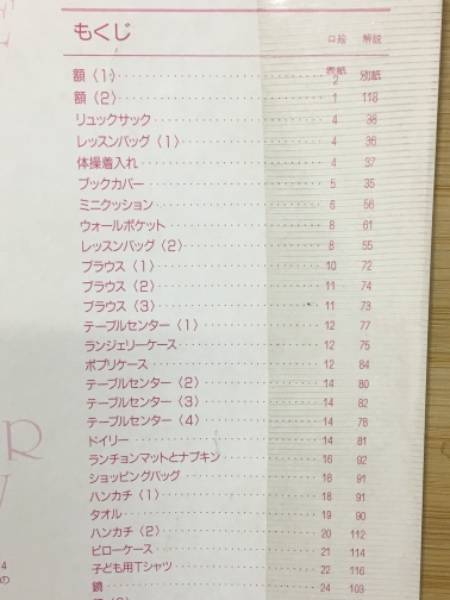 もくじ 口絵 解説
額〈1〉 表紙2 別紙
額〈2〉 1 118
リュックサック 4 38
レッスンバッグ〈1〉 4 36
体操着入れ 4 37
ブックカバー 5 35
ミニクッション 6 56
ウォールポケット 8 61
レッスンバッグ〈2〉 8 55
ブラウス〈1〉 10 72
ブラウス〈2〉 11 74
ブラウス〈3〉 11 73
テーブルセンター〈1〉 12 77
ランジェリーケース 12 75
ポプリケース 12 84
テーブルセンター〈2〉 14 80
テーブルセンター〈3〉 14 82
テーブルセンター〈4〉 14 78
ドイリー 14 81
ランチョンマットとナプキン 16 92
ショッピングバッグ 18 91
ハンカチ〈1〉 18 91
タオル 19 90
ハンカチ〈2〉 20 112
ピローケース 21 114
子ども用Tシャツ 22 116
鏡 24 103
R
4
の